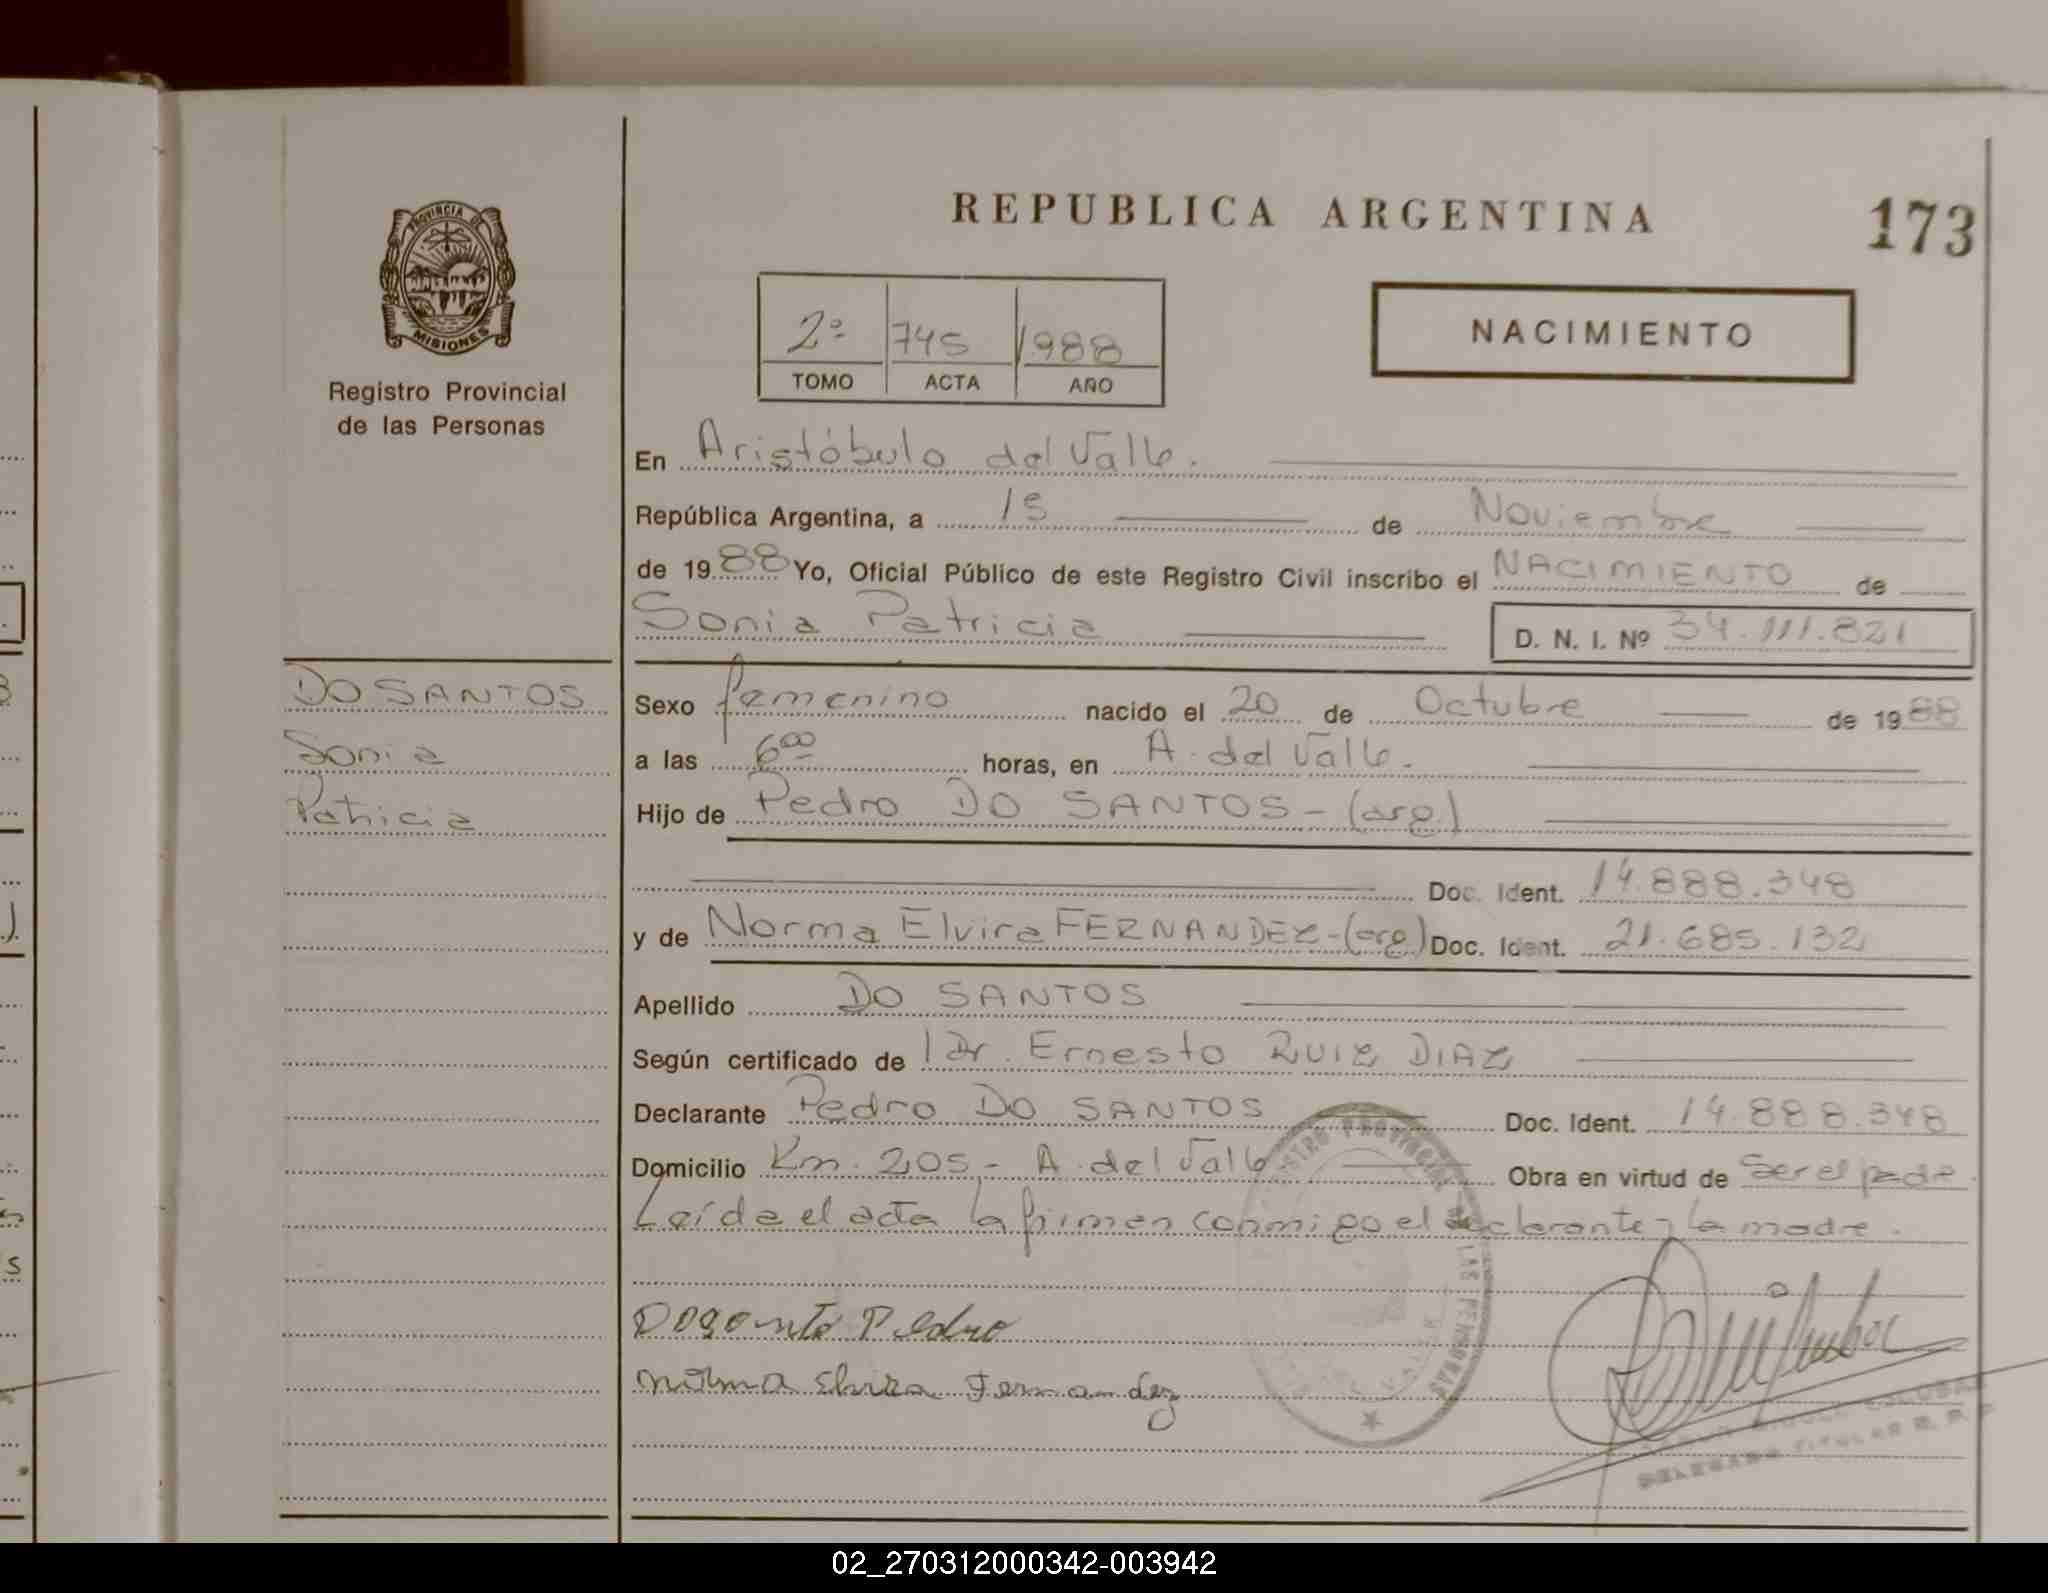 PROVINCIA DE
MISIONES
Registro Provincial
de las Personas
REPUBLICA ARGENTINA
173
2º 745 1988
TOMO ACTA AÑO
NACIMIENTO
En Aristóbulo del Valle.
República Argentina, a 15 de Noviembre
de 1988 Yo, Oficial Público de este Registro Civil inscribo el NACIMIENTO de
Sonia Patricia D. N. I. Nº 34.111.821
DO SANTOS
Sonia
Patricia
Sexo femenino nacido el 20 de Octubre de 1988
a las 6 00 horas, en A. del Valle.
Hijo de Pedro DO SANTOS - (arg.)
Doc. Ident. 14.888.348
y de Norma Elvira FERNANDEZ - (arg.) Doc. Ident. 21.685.132
Apellido DO SANTOS
Según certificado de Dr. Ernesto RUIZ DIAZ
Declarante Pedro DO SANTOS Doc. Ident. 14.888.348
Domicilio Km. 205 - A. del Valle Obra en virtud de Ser el padre.
Leída el acta la firman conmigo el declarante y la madre.
Dosonto Pedro
Norma Elvira Fernandez
DELEGADO TITULAR R. P. P.
02_270312000342-003942